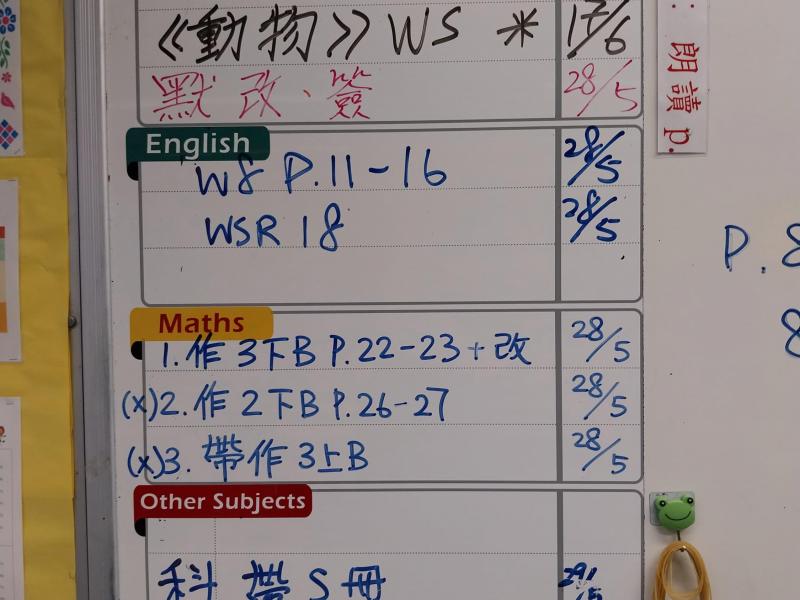 《動物》WS * 17/6
默改、簽 28/5
English
WB P.11-16 28/5
WSR 18 28/5
Maths
1.作3下B P.22-23+改 28/5
(x)2.作2下B P.26-27 28/5
(x)3.帶作3上B 28/5
Other Subjects
科 帶 S 冊
：朗讀p.
P. 8
8